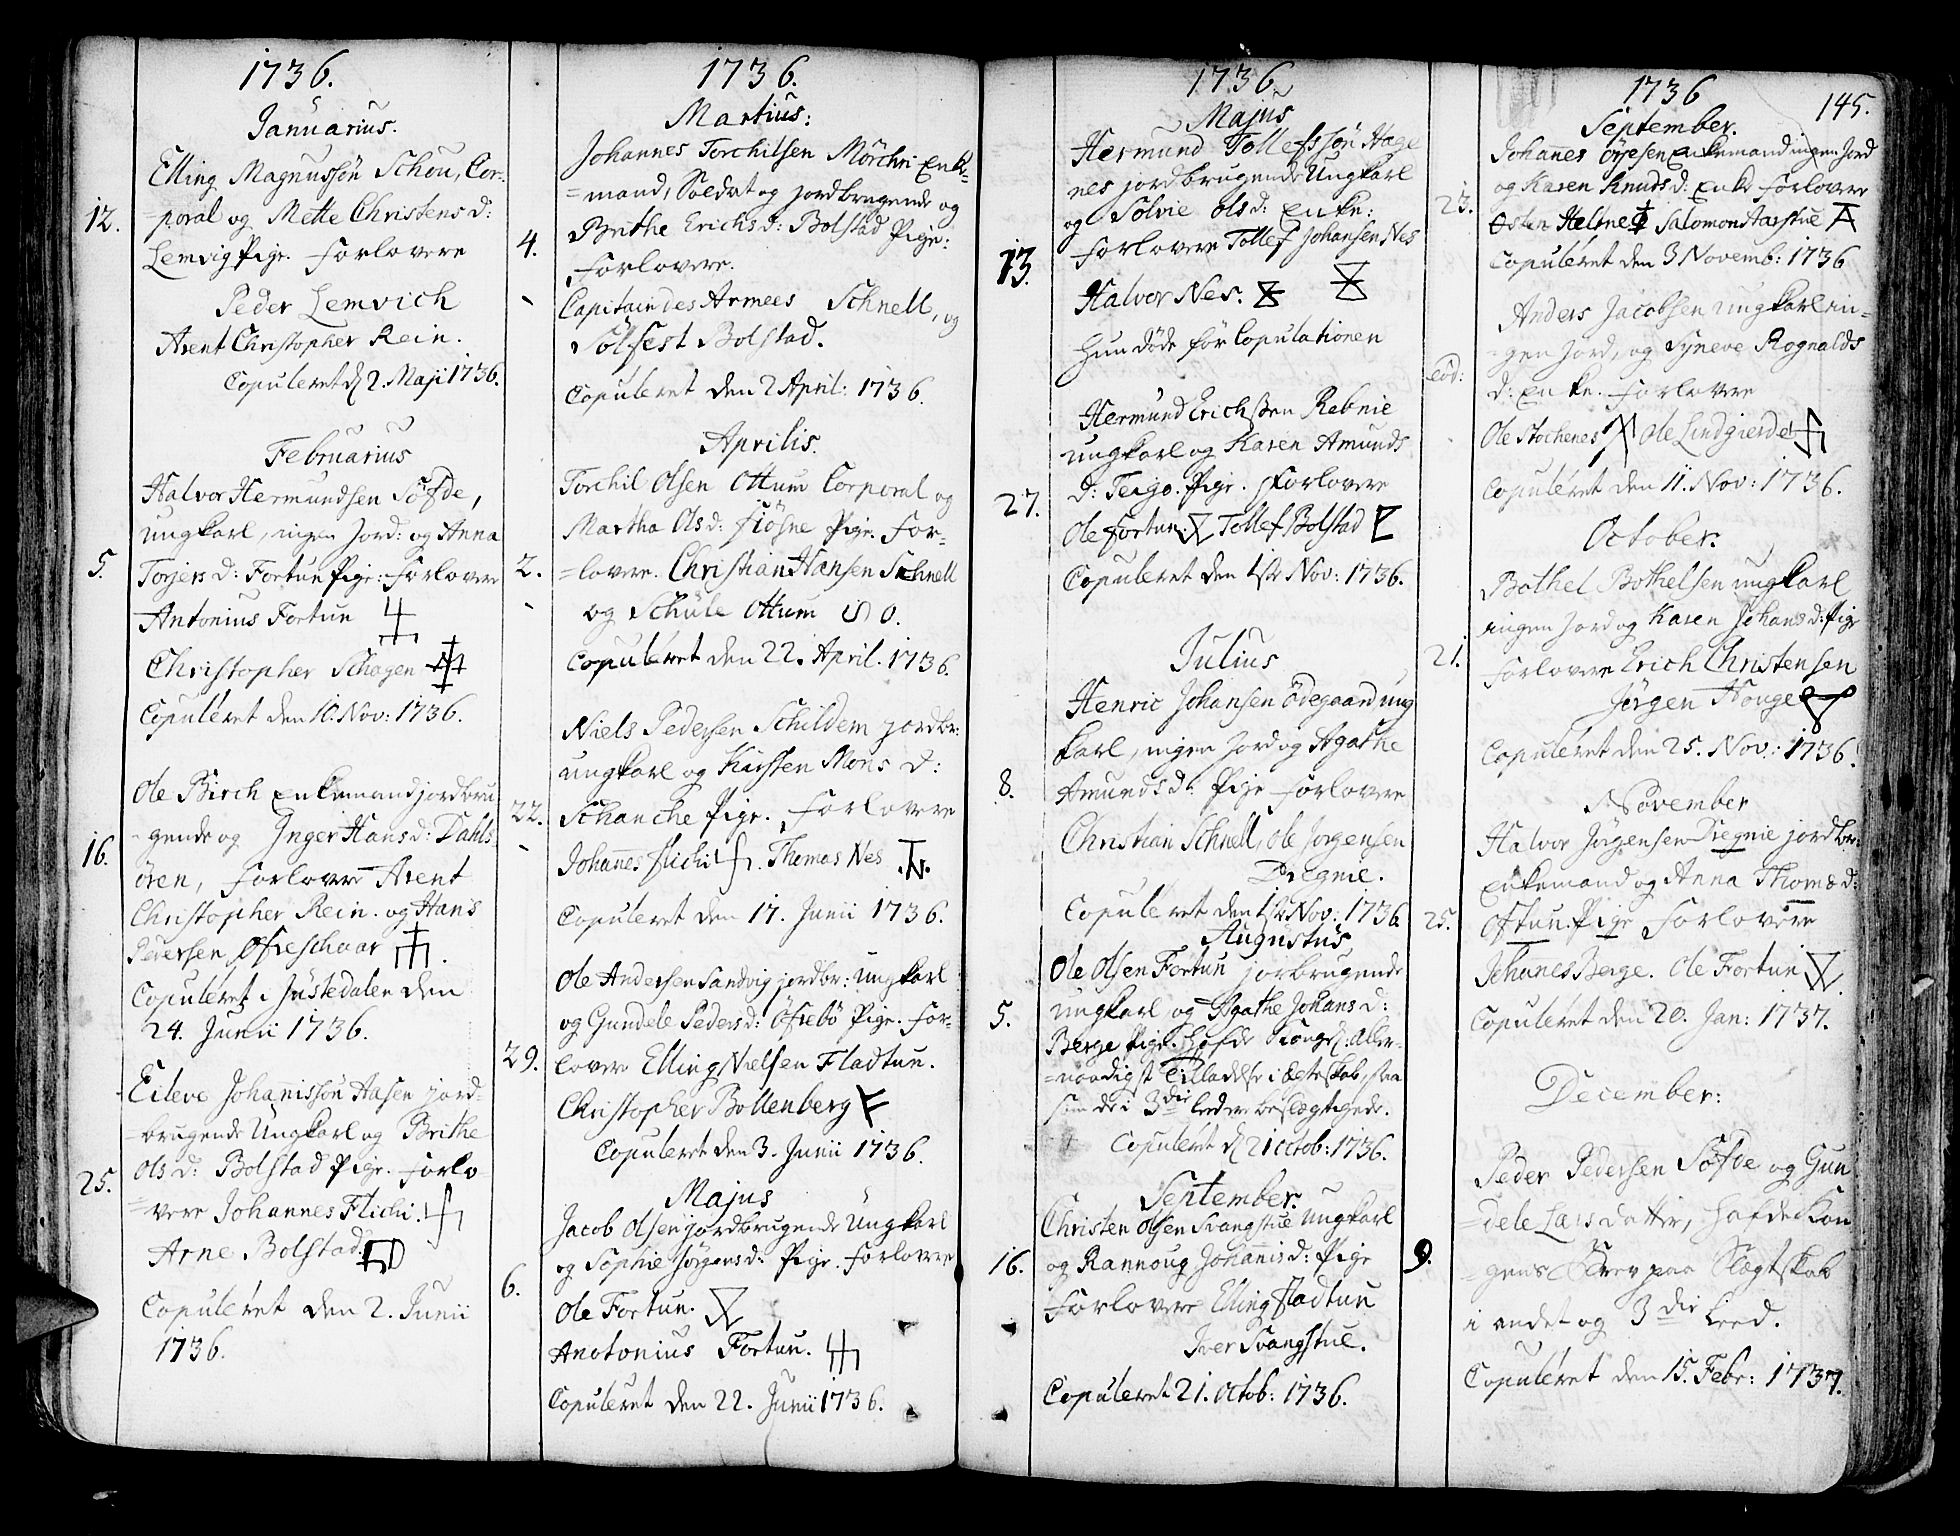 1736.
Januarius.
Elling Magnussön Schou, Cor-
12. poral og Mette Christens d:
Lemvig Pige. Forlovere
Peder Lemvich
Arent Christopher Rein.
Copuleret d 2. Maji 1736.
Februarius
Halvor Hermundsen Söfde,
ungkarl, ingen Jord: og Anna
5. Torjers d: Fortun Pige: Forlovere
Antonius Fortun
Christopher Schagen
Copuleret den 10. Nov: 1736.
Ole Birch Enkemand jordbru
16. gende og Inger Hans d: Dahls
ören, Forlovere Arent
Christopher Rein. og Hans
Pedersen Öfreschaar
Copuleret i Justedalen den
24. Junii 1736.
Eileve Johanissön Hasen jord-
brugende Ungkarl og Brithe
25. Ols d: Bolstad Pige. Forlo-
vere Johannes Flichi.
Arne Bolstad.
Copuleret den 2. Junii
1736.
1736.
Martius:
Johannes Torchilsen Mörchri Enke-
mand, Soldat og jordbrugende og
4. Brithe Erichs d: Bolstad Pige:
Forlovere.
Capitain des Armees Schnell, og
Solfest Bolstad.
Copuleret den 2 April: 1736.
Aprilis.
Torchil Olsen Ottum Corporal og
Martha Ols d: Fiösne Pige. For-
2. lovere. Christian Hansen Schnell
og Schule Ottum S O.
Copuleret den 22. April. 1736.
Niels Pedersen Schildem jordbr:
ungkarl og Kirsten Mons d:
22. Schanche Pige. Forlovere
Johannes Flichi. Thomas Nes
Copuleret den 17. Junii 1736.
Ole Andersen Sandvig jordbr: Ungkarl
og Gundele Peders d: Öfrebö Pige. For-
29. lovere Elling Nielsen Fladtun.
Christopher Bollenberg
Copuleret den 3. Junii 1736.
Majus
Jacob Olsen jordbrugende Ungkarl
og Sophie Jörgens d: Pige. Forlovere
6. Ole Fortun.
Anotonius Fortun.
Copuleret den 22. Junii 1736.
1736
Majus
Hermund Tollefssön Hage
nes jordbrugende Ungkarl
og Sölvie Ols d: Enke:
13. Forlovere Tollef Johansen Nes
Halvor Nes.
Hun döde för Copulationen
Hermund Erichssen Rebnie
ungkarl og Karen Amunds
27. d: Teigo. Pige. Forlovere
Ole Fortun. Tollef Bolstad
Copuleret den 1ste Nov: 1736.
Julius
Henric Johansen Ödegaard ung
karl, ingen Jord og Agathe
8. Amunds d: Pige Forlovere
Christian Schnell, Ole Jörgensen
Dregnie.
Copuleret den 1ste Nov: 1736
Augustus
Ole Olsen Fortun jorbrugende
5. ungkarl og Agathe Johans d:
Berge Pige. Hafde Kongel: Aller-
naadigst Tilladelse i Ægteskab, saa
som de i 3die Leed ere beslægtigede.
Copuleret d 21 Octob: 1736.
September.
Christen Olsen Svangstue Ungkarl
16. og Rannoug Johannis d: Pige
Forlovere Elling Fladtun
Iver Svangstue.
Copuleret 21. Octob: 1736.
1736
145.
September.
Johanes Öyesen Enkemand ingen Jord
23. og Karen Knuds d: Enke Forlovere
Osten Heltne Salomon Aarstue
Copuleret den 3 Novemb: 1736
Anders Jacobsen ungkarl in-
gen Jord, og Syneve Rognalds
eod: d: Enke. Forlovere
Ole Stochenes Ole Lindgierde
Copuleret den 11. Nov: 1736.
October.
Bothel Bothelsen ungkarl
ingen Jord og Karen Johans d: Pige
21. Forlovere Erich Christensen
Jörgen Houge
Copuleret den 25. Nov: 1736.
November
Halvor Jörgensen Dregnie jordbr:
Enkemand og Anna Thomæ d:
25. Oftun. Pige Forlovere
Johanes Berge. Ole Fortun
Copuleret den 20. Jan: 1737.
December:
Peder Pedersen Söfde og Gun
dele Lars datter, Hafde Kon
9. gens Brev paa Slægtskab
i andet og 3die Leed.
Copuleret den 15. Febr: 1737.